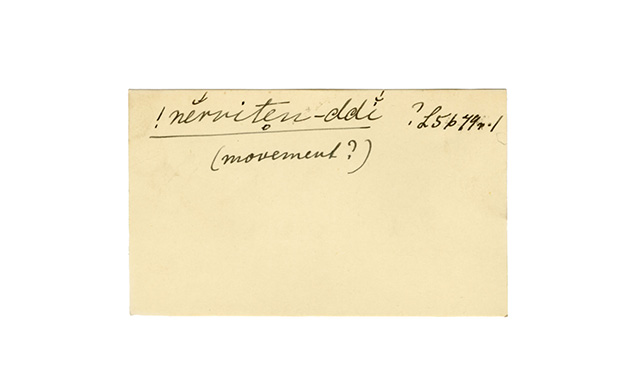 !nĕrriten̥-ddí̆ ? L5 p 79 n.1
(movement?)